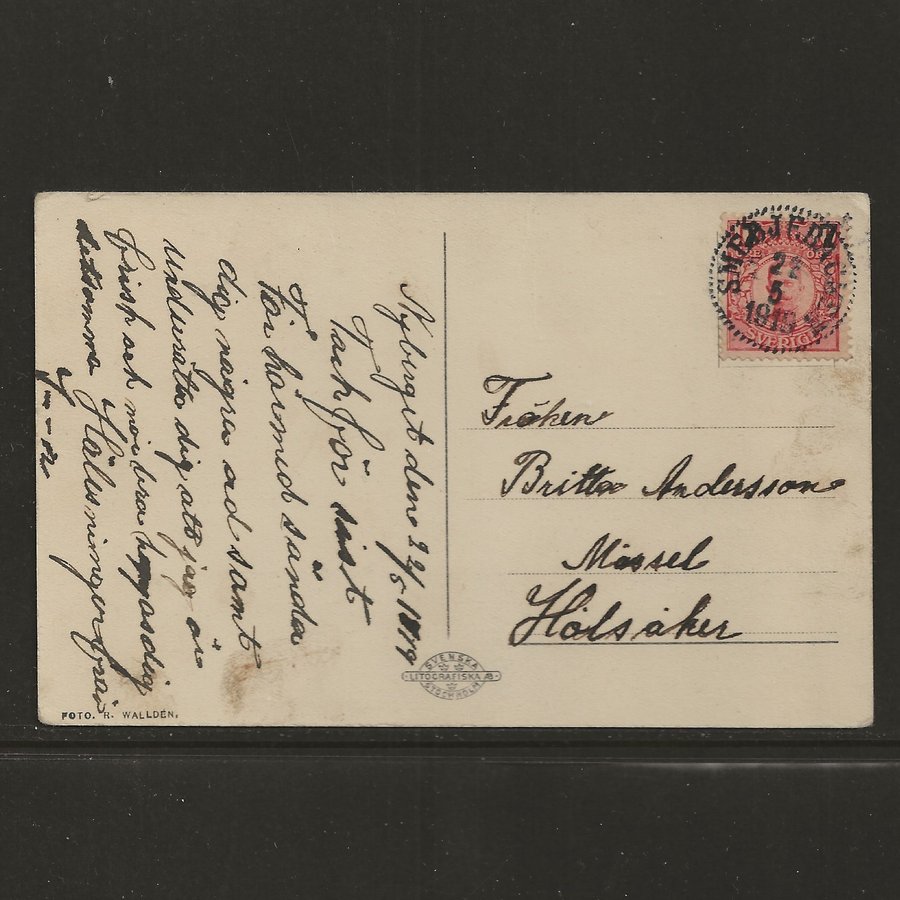 Nyberget den 22/5 1919
Tack för sist
Får härmed sända
dig några ad samt
underrätta dig att jag är
frisk och mår bra
detsamma Hälsningar från
SMEDJEBACKEN
22
5
1919
SVERIGE
Fröken
Britta Andersson
Missel
Hölsåker
SVENSKA
LITOGRAFISKA AB
STOCKHOLM
FOTO. R. WALLDÉN.